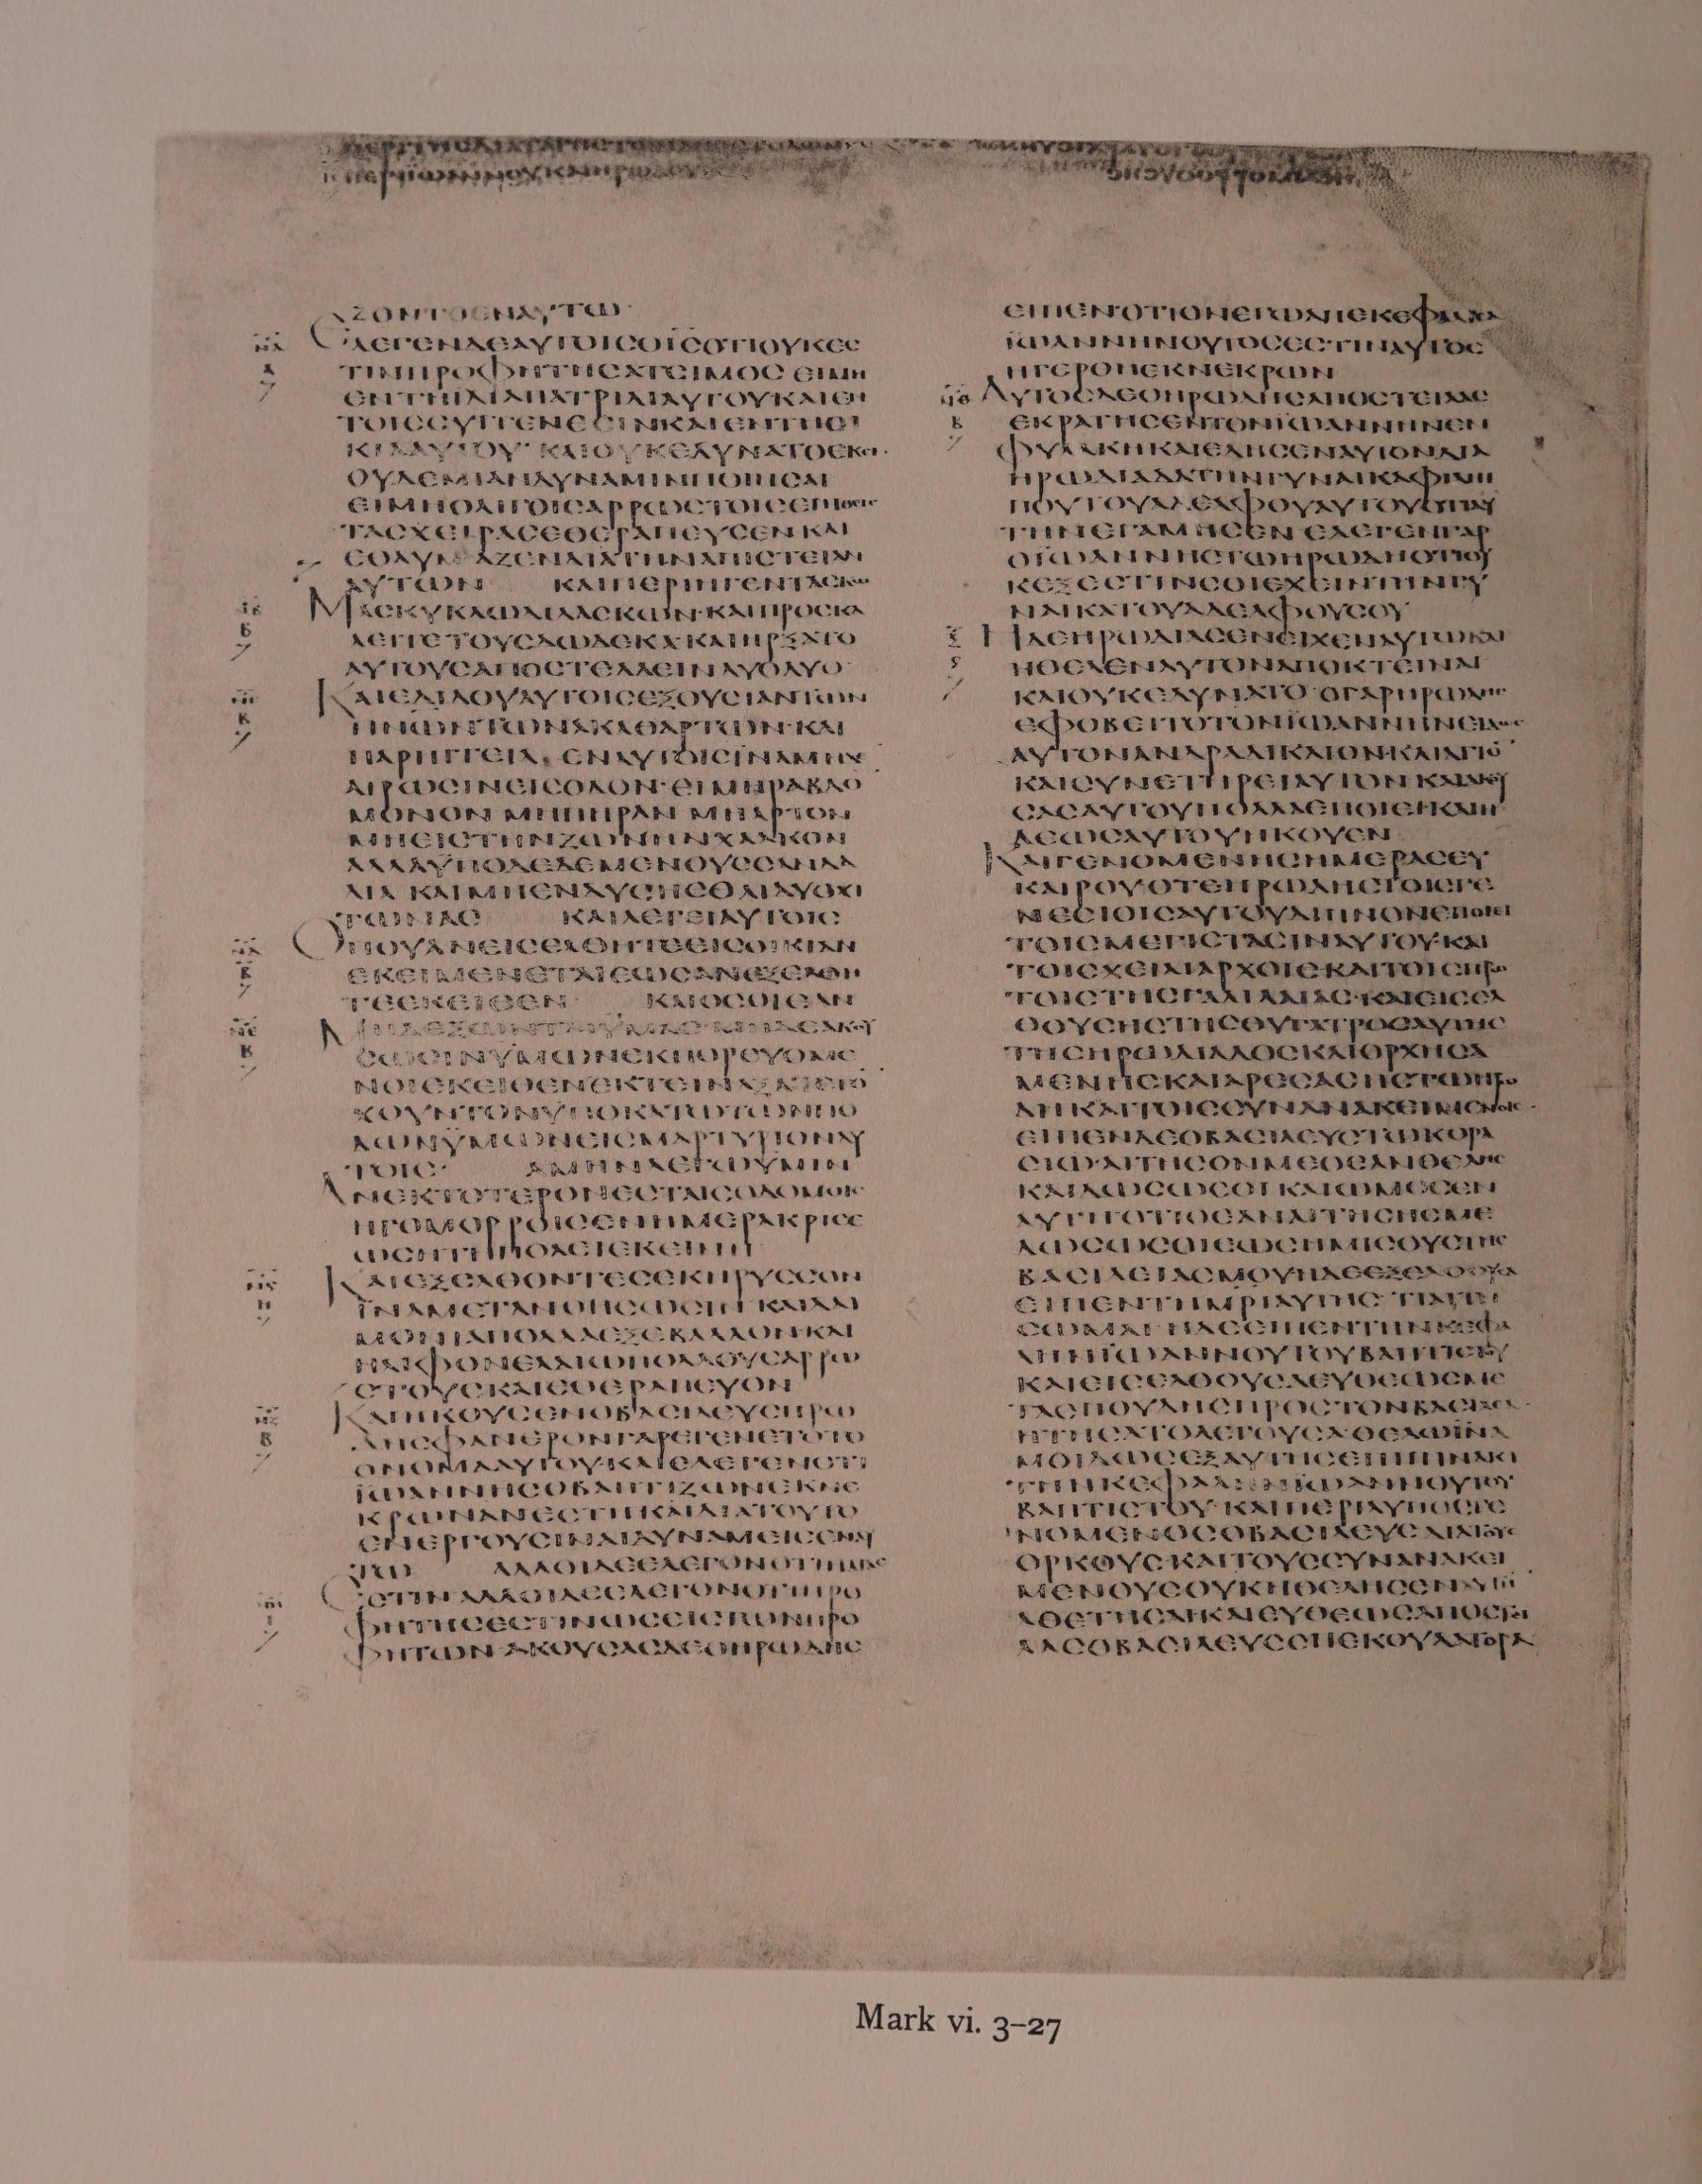 ΛΖΟΝΤΟΕΝΑΥΤΩ·
ΕΛΕΓΕΝΔΕΑΥΤΟΙϹΟΙϹΟΤΙΟΥΚΕϹ
ΤΙΝΠΡΟΦΗΤΗϹΑΤΕΙΜΟϹ ΕΙΜΗ
ΕΝΤΗΙΔΙΑΠΑΤΡΙΔΙΑΥΤΟΥΚΑΙΕΝ
ΤΟΙϹϹΥΓΓΕΝΕϹΙΝΚΑΙΕΝΤΗΟΙ
ΚΙΑΑΥΤΟΥ· ΚΑΙΟΥΚΕΔΥΝΑΤΟΕΚΕΙ
ΟΥΔΕΜΙΑΝΔΥΝΑΜΙΝΠΟΙΗϹΑΙ
ΕΙΜΗΟΛΙΓΟΙϹΑΡΡΩϹΤΟΙϹΕΠΙΘΕΙϹ
ΤΑϹΧΕΙΡΑϹΕΘΕΡΑΠΕΥϹΕΝ ΚΑΙ
ΕΘΑΥΜΑΖΕΝΔΙΑΤΗΝΑΠΙϹΤΕΙΑΝ
ΑΥΤΩΝ ΚΑΙΠΕΡΙΗΓΕΝΤΑϹΚΩ
ΜΑϹΚΥΚΛΩΔΙΔΑϹΚΩΝ·ΚΑΙΠΡΟϹΚΑ
ΛΕΙΤΕΤΟΥϹΔΩΔΕΚΑΚΑΙΗΡΞΑΤΟ
ΑΥΤΟΥϹΑΠΟϹΤΕΛΛΕΙΝΔΥΟΔΥΟ·
ΚΑΙΕΔΙΔΟΥΑΥΤΟΙϹΕΞΟΥϹΙΑΝΤΩΝ
ΠΝΩΝΤΩΝΑΚΑΘΑΡΤΩΝ·ΚΑΙ
ΠΑΡΗΓΓΕΙΛΕΝΑΥΤΟΙϹΙΝΑΜΗΔΕ
ΑΙΡΩϹΙΝΕΙϹΟΔΟΝ·ΕΙΜΗΡΑΒΔΟ
ΜΟΝΟΝ ΜΗΠΗΡΑΝ ΜΗΑΡΤΟΝ
ΜΗΕΙϹΤΗΝΖΩΝΗΝΧΑΛΚΟΝ
ΑΛΛΑΥΠΟΔΕΔΕΜΕΝΟΥϹϹΑΝΔΑ
ΛΙΑ ΚΑΙΜΗΕΝΔΥϹΗϹΘΑΙΔΥΟΧΙ
ΤΩΝΑϹ ΚΑΙΛΕΓΕΙΑΥΤΟΙϹ
ΟΠΟΥΑΝΕΙϹΕΛΘΗΤΕΕΙϹΟΙΚΙΑΝ
ΕΚΕΙΜΕΝΕΤΑΙΕΩϹΑΝΕΞΕΛΘΗ
ΤΕΕΚΕΙΘΕΝ· ΚΑΙΟϹΟΙΕΑΝ
ΧΟΥΝΤΟΝΥΠΟΚΑΤΩΤΩΝΠΟ
ΔΩΝΥΜΩΝΕΙϹΜΑΡΤΥΡΙΟΝΑΥ
ΤΟΙϹ· ΑΜΗΝΛΕΓΩΥΜΙΝ
ΑΝΕΚΤΟΤΕΡΟΝΕϹΤΑΙϹΟΔΟΜΟΙϹ
ΗΓΟΜΟΡΡΟΙϹΕΝΗΜΕΡΑΚΡΙϹΕ
ΩϹΗΤΗΠΟΛΕΙΕΚΕΙΝΗ
ΚΑΙΕΞΕΛΘΟΝΤΕϹΕΚΗΡΥϹϹΟΝ
ΪΝΑΜΕΤΑΝΟΗϹΩϹΙΝ ΚΑΙΔΑΙ
ΜΟΝΙΑΠΟΛΛΑΕΞΕΒΑΛΛΟΝΚΑΙ
ΗΛΙΦΟΝΕΛΑΙΩΠΟΛΛΟΥϹΑΡΡΩ
ϹΤΟΥϹΚΑΙΕΘΕΡΑΠΕΥΟΝ
ΚΑΙΗΚΟΥϹΕΝΟΒΑϹΙΛΕΥϹΗΡΩ
ΔΗϹΦΑΝΕΡΟΝΓΑΡΕΓΕΝΕΤΟΤΟ
ΟΝΟΜΑΑΥΤΟΥΚΑΙΕΛΕΓΕΝΟΤΙ
ΪΩΑΝΝΗϹΟΒΑΠΤΙΖΩΝΕΚΝΕ
ΚΡΩΝΑΝΕϹΤΗΚΑΙΔΙΑΤΟΥΤΟ
ΕΝΕΡΓΟΥϹΙΝΑΙΔΥΝΑΜΕΙϹΕΝΑΥ
ΤΩ ΑΛΛΟΙΔΕΕΛΕΓΟΝΟΤΙΗΛΙΑϹ
ΕϹΤΙΝ ΑΛΛΟΙΔΕΕΛΕΓΟΝΟΤΙΠΡΟ
ΦΗΤΗϹΕϹΤΙΝΩϹΕΙϹΤΩΝΠΡΟ
ΦΗΤΩΝ ΑΚΟΥϹΑϹΔΕΟΗΡΩΔΗϹ
ΕΙΠΕΝΟΤΙΟΝΕΓΩΑΠΕΚΕΦΑΛΙϹΑ
ΪΩΑΝΝΗΝΟΥΤΟϹΕϹΤΙΝΑΥΤΟϹ
ΗΓΕΡΘΗΕΚΝΕΚΡΩΝ
ΑΥΤΟϹΔΕΟΗΡΩΔΗϹΑΠΟϹΤΕΙΛΑϹ
ΕΚΡΑΤΗϹΕΝΤΟΝΪΩΑΝΝΗΝΕΝ
ΦΥΛΑΚΗΚΑΙΕΔΗϹΕΝΑΥΤΟΝΔΙΑ
ΗΡΩΔΙΑΔΑΤΗΝΓΥΝΑΙΚΑΦΙΛΙΠ
ΠΟΥΤΟΥΑΔΕΛΦΟΥΑΥΤΟΥΟΤΙΑΥ
ΤΗΝΕΓΑΜΗϹΕΝ ΕΛΕΓΕΝΓΑΡ
ΟΪΩΑΝΝΗϹΤΩΗΡΩΔΗΟΤΙΟΥ
ΚΕΞΕϹΤΙΝϹΟΙΕΧΕΙΝΤΗΝΓΥ
ΝΑΙΚΑΤΟΥΑΔΕΛΦΟΥϹΟΥ
ΗΔΕΗΡΩΔΙΑϹΕΝΕΙΧΕΝΑΥΤΩΚΑΙ
ΗΘΕΛΕΝΑΥΤΟΝΑΠΟΚΤΕΙΝΑΙ
ΚΑΙΟΥΚΕΔΥΝΑΤΟ·ΟΓΑΡΗΡΩΔΗϹ
ΕΦΟΒΕΙΤΟΤΟΝΪΩΑΝΝΗΝΕΙΔΩϹ
ΑΥΤΟΝΑΝΔΡΑΔΙΚΑΙΟΝΚΑΙΑΓΙΟ
ΚΑΙϹΥΝΕΤΗΡΕΙΑΥΤΟΝΚΑΙΑΚΟΥ
ϹΑϹΑΥΤΟΥΠΟΛΛΑΕΠΟΙΕΙΚΑΙΗ
ΔΕΩϹΑΥΤΟΥΗΚΟΥΕΝ
ΚΑΙΓΕΝΟΜΕΝΗϹΗΜΕΡΑϹΕΥ
ΚΑΙΡΟΥΟΤΕΗΡΩΔΗϹΤΟΙϹΓΕ
ΝΕϹΙΟΙϹΑΥΤΟΥΔΙΠΝΟΝΕΠΟΙΕΙ
ΤΟΙϹΜΕΓΙϹΤΑϹΙΝΑΥΤΟΥ·ΚΑΙ
ΤΟΙϹΧΕΙΛΙΑΡΧΟΙϹΚΑΙΤΟΙϹΠΡΩ
ΤΟΙϹΤΗϹΓΑΛΙΛΑΙΑϹ·ΚΑΙΕΙϹΕΛ
ΘΟΥϹΗϹΤΗϹΘΥΓΑΤΡΟϹΑΥΤΗϹ
ΤΗϹΗΡΩΔΙΑΔΟϹΚΑΙΟΡΧΗϹΑ
ΜΕΝΗϹΚΑΙΑΡΕϹΑϹΗϹΤΩΗΡΩ
ΔΗΚΑΙΤΟΙϹϹΥΝΑΝΑΚΕΙΜΕΝΟΙϹ
ΕΙΠΕΝΔΕΟΒΑϹΙΛΕΥϹΤΩΚΟΡΑ
ϹΙΩΑΙΤΗϹΟΝΜΕΟΕΑΝΘΕΛΗϹ
ΚΑΙΔΩϹΩϹΟΙ ΚΑΙΩΜΟϹΕΝ
ΑΥΤΗΟΤΙΟΕΑΝΑΙΤΗϹΗϹΜΕ
ΔΩϹΩϹΟΙΕΩϹΗΜΙϹΟΥϹΤΗϹ
ΒΑϹΙΛΕΙΑϹΜΟΥΗΔΕΕΞΕΛΘΟΥϹΑ
ΕΙΠΕΝΤΗΜΡΙΑΥΤΗϹ ΤΙΑΙΤΗ
ϹΩΜΑΙ ΗΔΕΕΙΠΕΝΤΗΝΚΕΦΑ
ΛΗΝΪΩΑΝΝΟΥΤΟΥΒΑΠΤΙϹΤΟΥ
ΚΑΙΕΙϹΕΛΘΟΥϹΑΕΥΘΕΩϹΜΕ
ΤΑϹΠΟΥΔΗϹΠΡΟϹΤΟΝΒΑϹΙΛΕΑ
ΗΤΗϹΑΤΟΛΕΓΟΥϹΑΘΕΛΩΪΝΑ
ΜΟΙΔΩϹΕΞΑΥΤΗϹΕΠΙΠΙΝΑΚΙ
ΤΗΝΚΕΦΑΛΗΝΪΩΑΝΝΟΥΤΟΥ
ΒΑΠΤΙϹΤΟΥ·ΚΑΙΠΕΡΙΛΥΠΟϹΓΕ
ΝΟΜΕΝΟϹΟΒΑϹΙΛΕΥϹΔΙΑΤΟΥϹ
ΟΡΚΟΥϹΚΑΙΤΟΥϹϹΥΝΑΝΑΚΕΙ
ΜΕΝΟΥϹΟΥΚΗΘΕΛΗϹΕΝΑΥΤΗ
ΑΘΕΤΗϹΑΙΚΑΙΕΥΘΕΩϹΑΠΟϹΤΙ
ΛΑϹΟΒΑϹΙΛΕΥϹϹΠΕΚΟΥΛΑΤΟΡΑ
Mark vi. 3–27